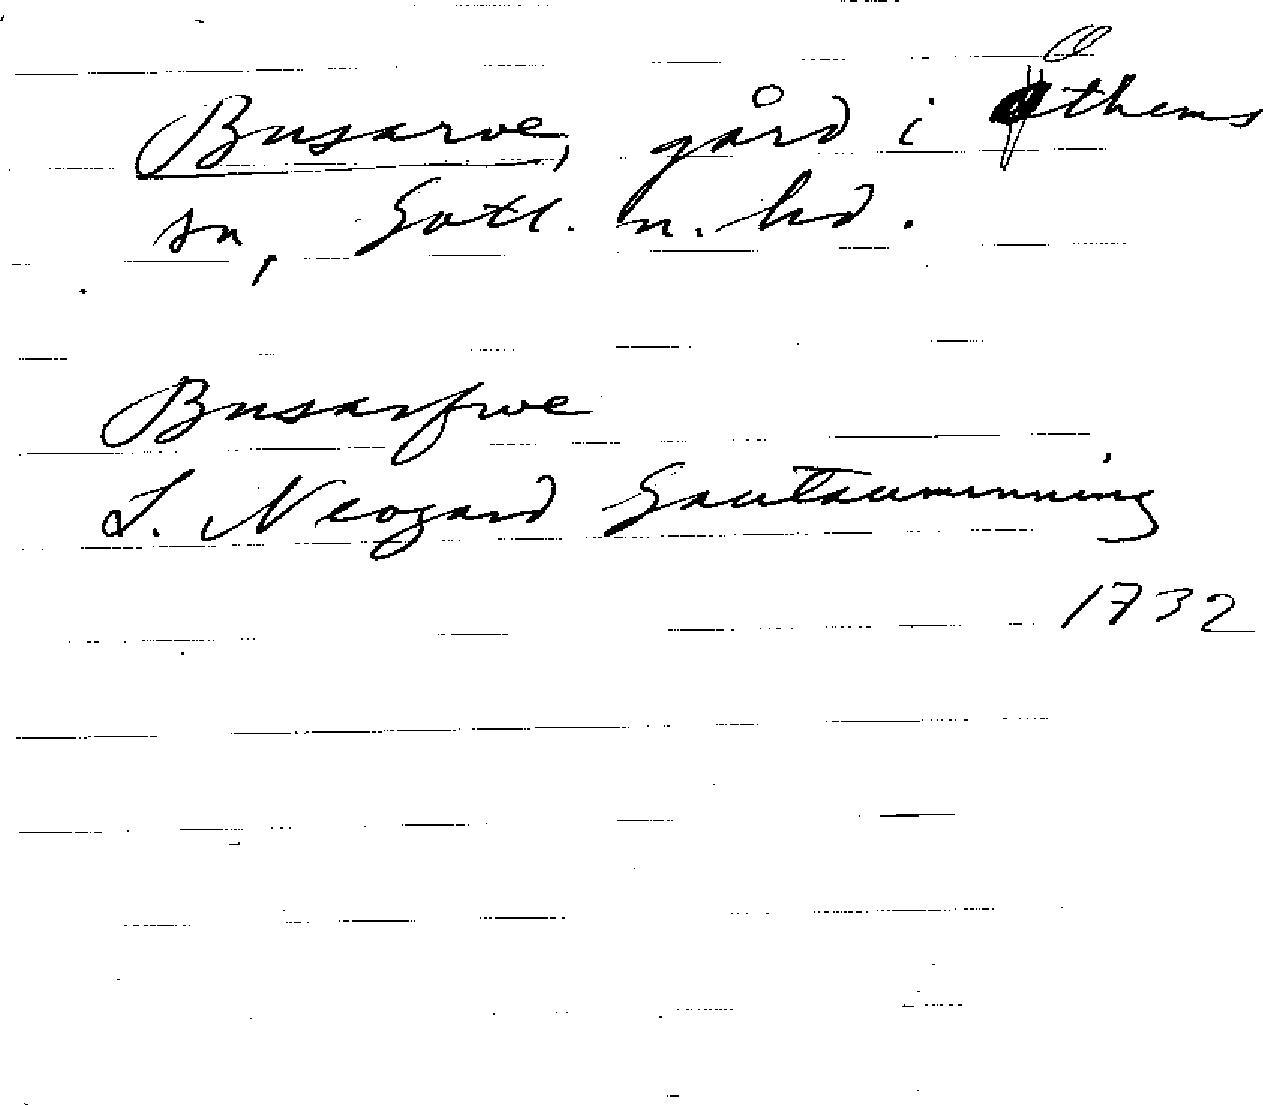 Busarve, gård i Othems
sn, Gotl. n. hd.
Busarfwe
J. Neogard Gautauminning
1732